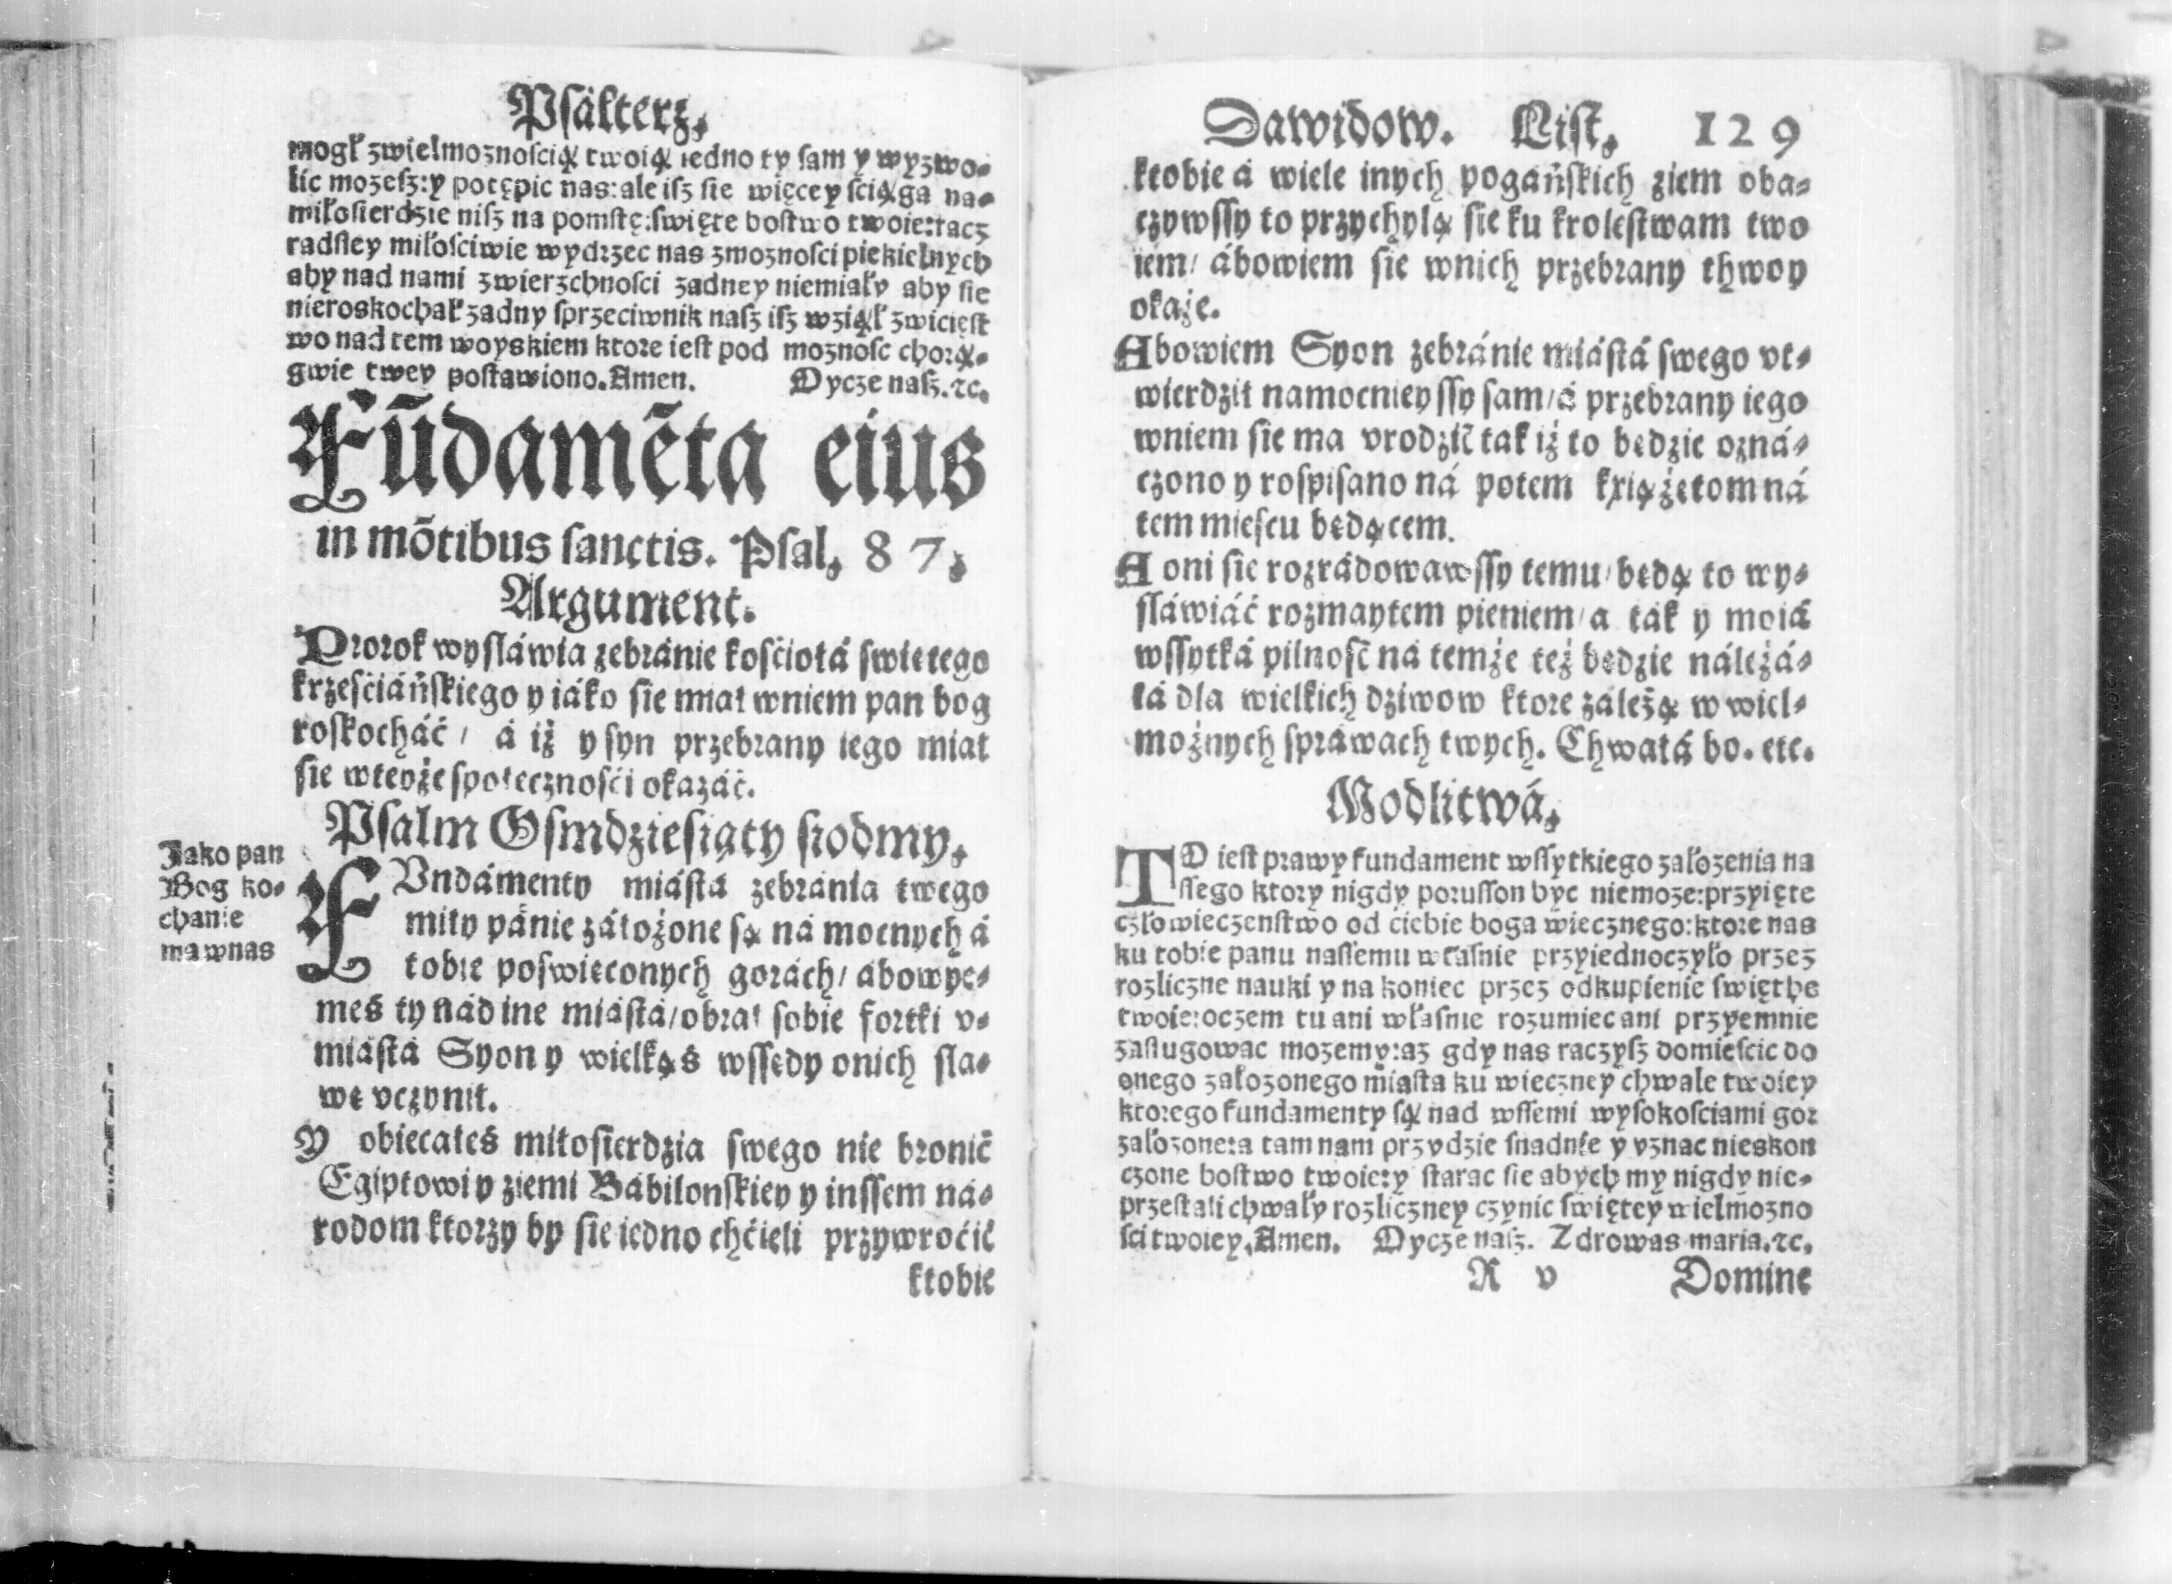 Psálterz,
mogł zwielmoznoscią twoią iedno ty sam y wyzwo-
lic mozesz:y potępic nas:ale isz sie więcey sciąga na-
miłosierdzie nisz na pomstę:swięte bostwo twoie:racz
radsiey miłosciwie wydrzec nas zmoznosci piekielnych
aby nad nami zwierzchnosci zadney niemiały aby sie
nieroskochał zadny sprzeciwnik nasz isz wziął zwicięst
wo nad tem woyskiem ktore iest pod moznosc chorą-
gwie twey postawiono. Amen. Oycze nasz. ꝛc.
Fūdamēta eius
in mōtibus sanctis. Psal, 87,
Argument.
Prorok wysláwia zebránie kośćiołá swiętego
krześćiáńskiego y iáko sie miał wniem pan bog
roskocháć / á iż y syn przebrany iego miał
sie wteyże społecznośći okazáć.
Psalm Osmdziesiąty siodmy,
Jako pan
Bog ko-
chanie
ma wnas
FVndámenty miástá zebránia twego
miły pánie záłożone są ná mocnych á
tobie poświęconych gorách / ábowye-
meś ty nád ine miástá / obrał sobie fortki v-
miástá Syon y wielkąś wssędy onich sla-
wę vczynił.
Y obiecáłeś miłosierdzia swego nie bronić
Egiptowi y ziemi Bábilonskiey y inssem ná-
rodom ktorzy by sie iedno chćieli przywroćić
ktobie
Dawidow. List, 129
ktobie á wiele inych pogáńskich ziem oba-
czywssy to przychylą sie ku krolestwam two
iem / ábowiem sie wnich przebrany thwoy
okaże.
Abowiem Syon zebránie miástá swego vt-
wierdził namocnieyssy sam / á przebrany iego
wniem sie ma vrodzić tak iż to będzie ozná-
czono y rospisano ná potem kxiążętom ná
tem miescu będącem.
A oni sie rozrádowawssy temu / będą to wy-
sláwiáć rozmaytem pieniem / a ták y moiá
wssytká pilność ná temże też będzie náleżá-
łá dla wielkich dziwow ktore záleżą w wiel-
możnych spráwach twych. Chwałá bo. etc.
Modlitwá,
TO iest prawy fundament wssytkiego załozenia na
ssego ktory nigdy porusson byc niemoze:przyięte
człowieczenstwo od ciebie boga wiecznego:ktore nas
ku tobie panu nassemu własnie przyiednoczyło przez
rozliczne nauki y na koniec przez odkupienie swięthe
twoie:oczem tu ani własnie rozumiec ani przyemnie
zasługowac mozemy:az gdy nas raczysz domiescic do
onego załozonego miasta ku wieczney chwale twoiey
ktorego fundamenty są nad wssemi wysokosciami gor
załozone:a tam nam przydzie snadnie y vznac nieskon
czone bostwo twoie:y starac sie abych my nigdy nie-
przestali chwały rozliczney czynic swiętey wielmozno
sci twoiey, Amen. Oycze nasz. Zdrowas maria. ꝛc.
R v Domine